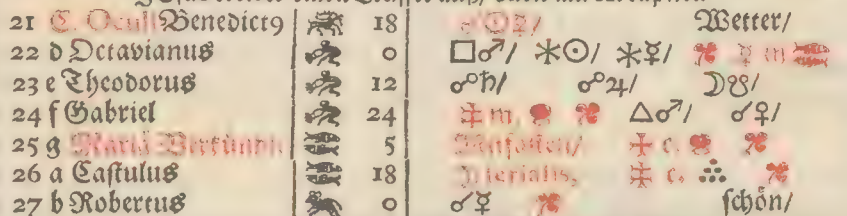 21 C. Oculi Benedict9 18 ☌☉☿/ Wetter/
22 d Octavianus 0 □♂/ ⚹☉/ ⚹☿/
23 e Theodorus 12 ☍♄/ ☍♃/ ☽☋/
24 f Gabriel 24 m. △♂/ ☌♀/
25 g Mariä Verkündi 5 c.
26 a Castulus 18 c.
27 b Robertus 0 ☌☿ schön/